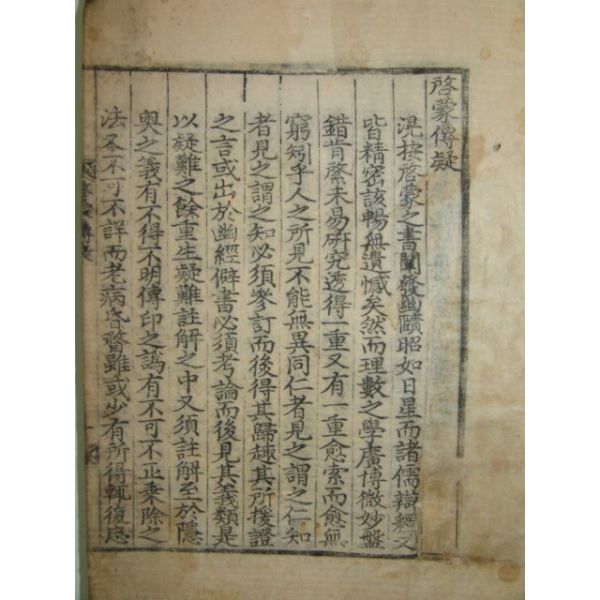 啓蒙傳疑
滉按啓蒙之書闡發幽賾昭如日星而諸儒辯釋又
皆精密該暢無遺憾矣然而理數之學廣博微妙盤
錯肯綮未易研究透得一重又有一重愈索而愈無
窮矧乎人之所見不能無異同仁者見之謂之仁知
者見之謂之知必須參訂而後得其歸趣其所援證
之言或出於幽經僻書必須考論而後見其義類是
以疑難之餘重生疑難註解之中又須註解至於隱
奧之義有不得不明傳印之譌有不可不正乘除之
法又不可不詳而老病昏瞀雖或少有所得輒復忘